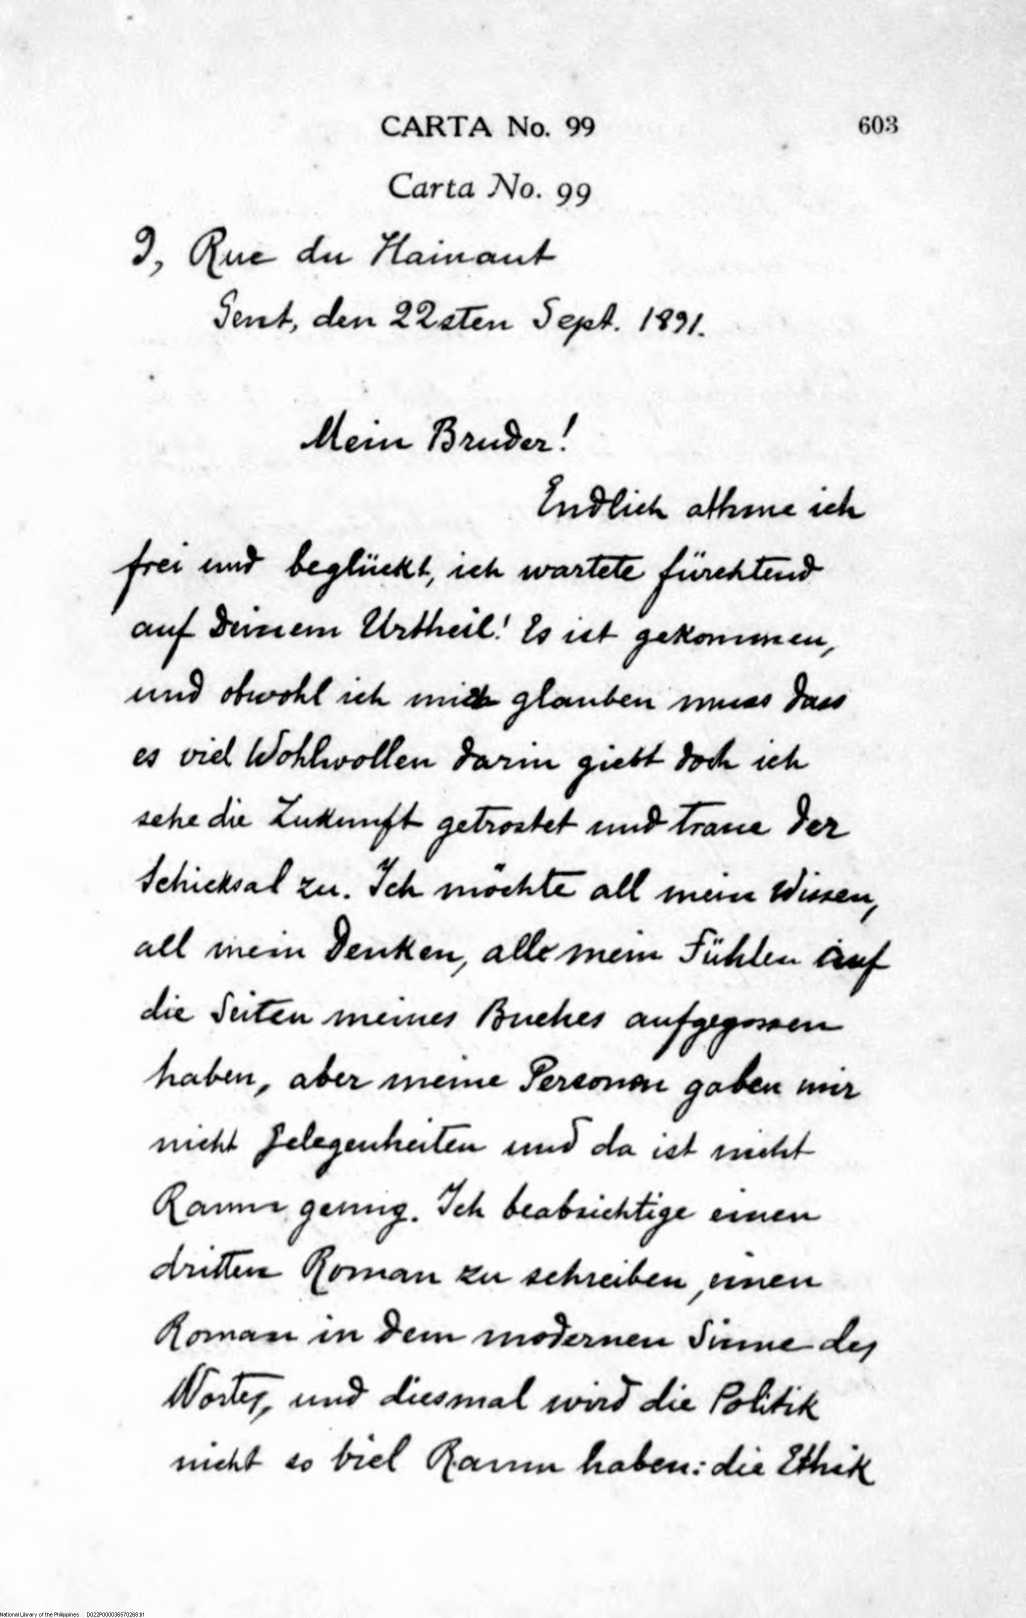 CARTA No. 99 603
Carta No. 99
9, Rue du Hainaut
Gent, den 22sten Sept. 1891.
Mein Bruder!
Endlich athme ich
frei und beglückt, ich wartete fürchtend
auf Deinem Urtheil! Es ist gekommen,
und obwohl ich mich glauben muss dass
es viel Wohlwollen darin giebt doch ich
sehe die Zukunft getrostet und traue der
Schicksal zu. Ich möchte all mein Wissen,
all mein Denken, alle mein Fühlen auf
die Seiten meines Buches aufgegossen
haben, aber meine Personen gaben mir
nicht Gelegenheiten und da ist nicht
Raum genug. Ich beabsichtige einen
dritten Roman zu schreiben, einen
Roman in dem modernen Sinne des
Wortes, und diesmal wird die Politik
nicht so viel Raum haben: die Ethik
National Library of the Philippines